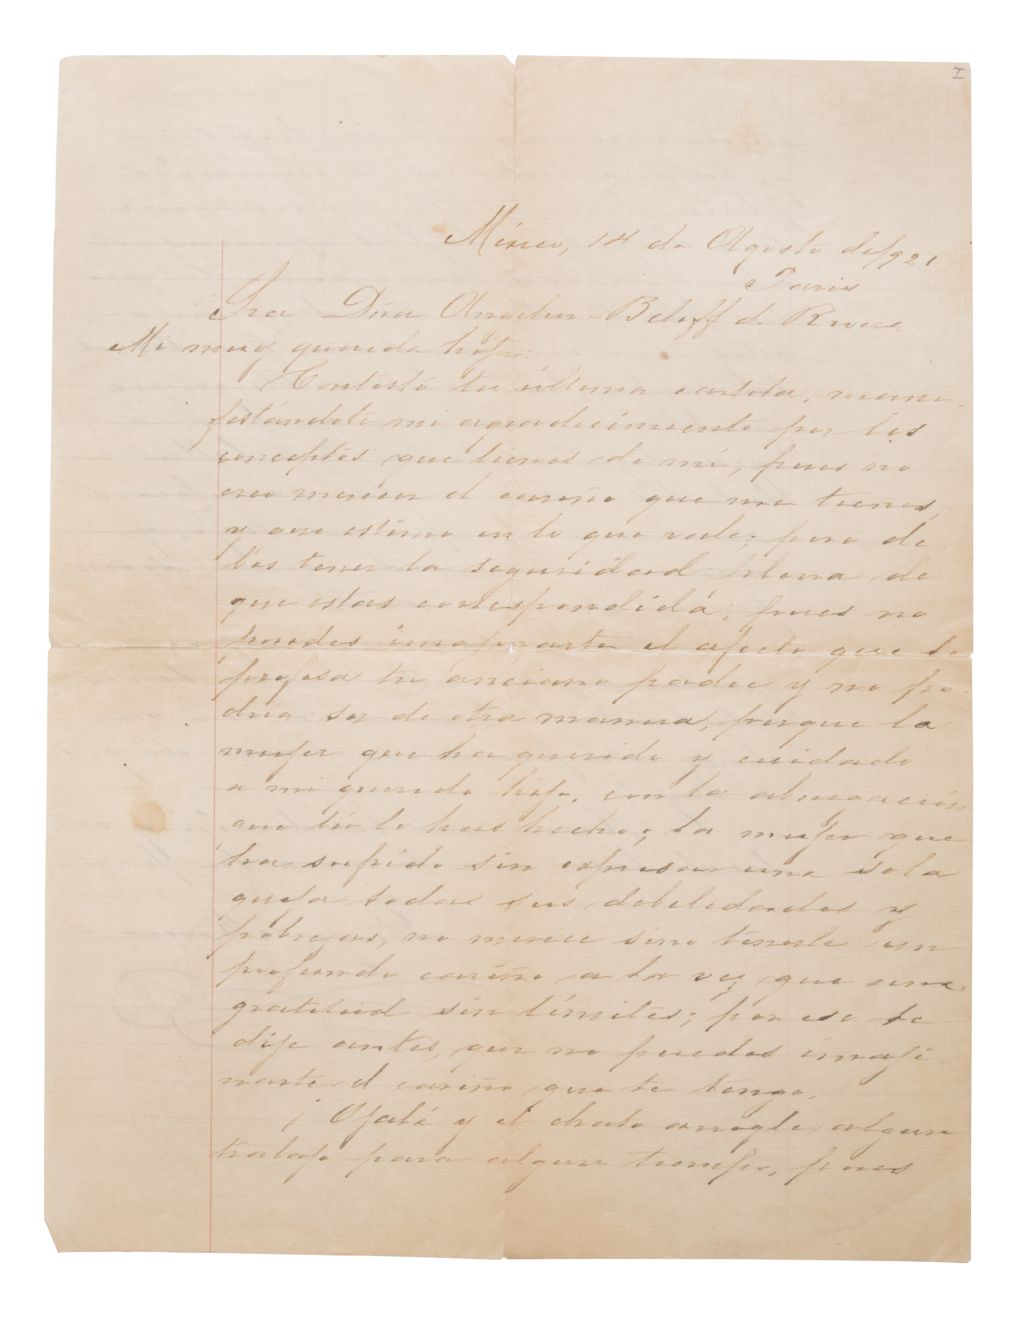 I
México, 14 de Agosto de 1921
Paris
Sra Dña Angelin Beloff d. Rivera
Mi muy querida hija:
Contesto tu última cartita, mani-
festándote mi agradecimiento por los
conceptos que tienes de mí, pues no
creo merecer el cariño que me tienes,
y que estimo en lo que vale; pero de-
bes tener la seguridad plena de
que estas correspondida, pues no
puedes imaginarte el afecto que te
profesa tu anciano padre y no po-
dria ser de otra manera, porque la
mujer que ha querido y cuidado
a mi querido hijo, con la abnegación
que tú lo has hecho; la mujer que
ha sufrido sin expresar una sola
queja todas sus debilidades y
pobrezas, no merece sino tenerle un
profundo cariño a la vez que una
gratitud sin límites; por eso te
dije antes, que no puedes imagi-
narte el cariño que te tengo.
¡Ojalá y el chato arregle algun
trabajo para algun tiempo, pues